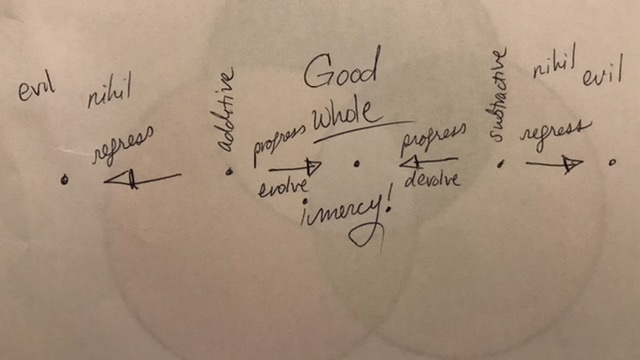 evil nihil regress
additive
Good
Whole
progress
evolve
¡mercy!
progress
devolve
subtractive
nihil evil
regress